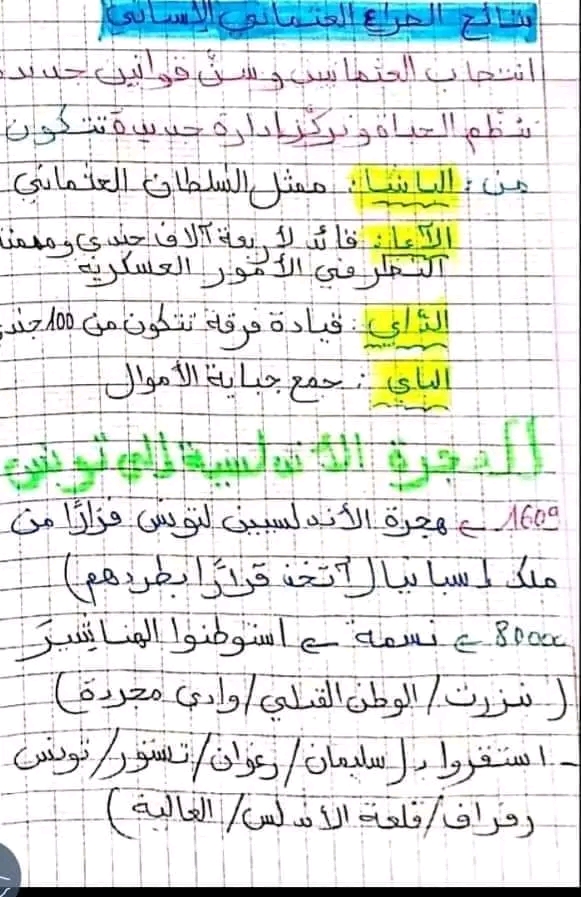 نتائج الصراع العثماني الإسباني
انتصاب العثمانيين وسنّ قوانين جديدة
تنظّم الحياة وتركّز إدارة جديدة تتكون
من : الباشا : ممثل السّلطان العثماني
الآغا : قائد لأربعة آلاف جندي ومهمته
النظر في الأمور العسكرية
الدّاي : قيادة فرقة تتكون من 100 جندي
الباي : جمع جباية الأموال
الهجرة الأندلسية إلى تونس
1609 ← هجرة الأندلسيين لتونس فرارًا من
ملك إسبانيا (اتخذ قرارًا بطردهم)
80000 ← نسمة ← استوطنوا الهناشير
(بنزرت / الوطن القبلي / وادي مجردة)
- استقروا بـ (سليمان / زغوان / تستور / تونس
رفراف / قلعة الأندلس / العالية)